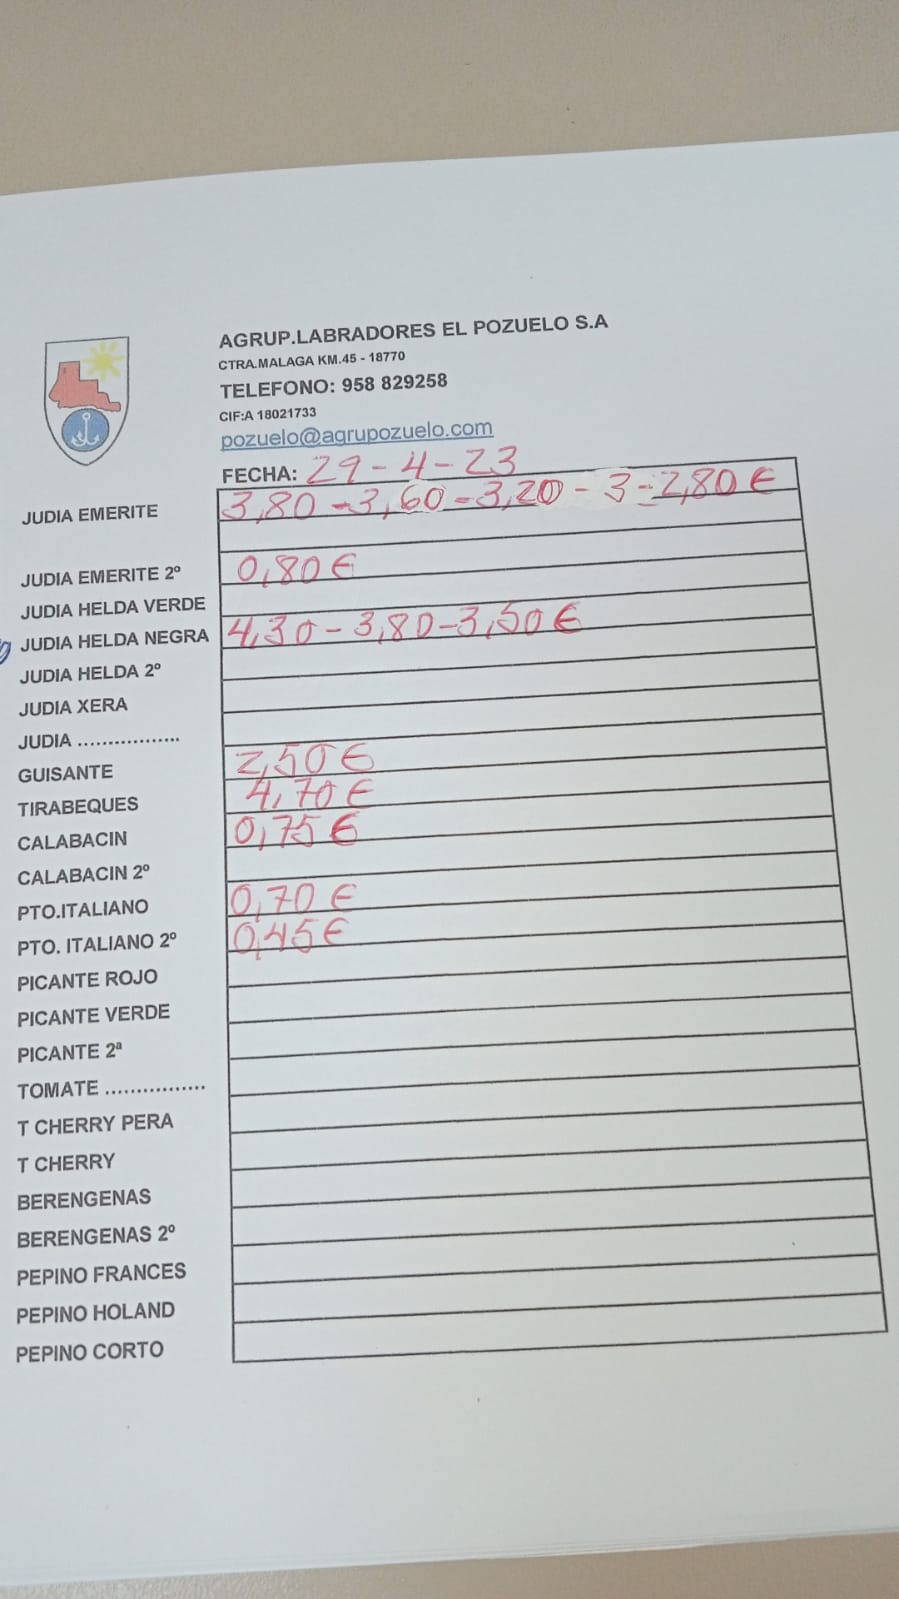 AGRUP.LABRADORES EL POZUELO S.A
CTRA.MALAGA KM.45 - 18770
TELEFONO: 958 829258
CIF:A 18021733
pozuelo@agrupozuelo.com
FECHA: 29-4-23
JUDIA EMERITE 3,80-3,60-3,20-3-2,80€
JUDIA EMERITE 2º 0,80€
JUDIA HELDA VERDE
JUDIA HELDA NEGRA 4,30-3,80-3,50€
JUDIA HELDA 2º
JUDIA XERA
JUDIA .................
GUISANTE 2,50€
TIRABEQUES 4,70€
CALABACIN 0,75€
CALABACIN 2º
PTO.ITALIANO 0,70€
PTO. ITALIANO 2º 0,45€
PICANTE ROJO
PICANTE VERDE
PICANTE 2ª
TOMATE ................
T CHERRY PERA
T CHERRY
BERENGENAS
BERENGENAS 2º
PEPINO FRANCES
PEPINO HOLAND
PEPINO CORTO